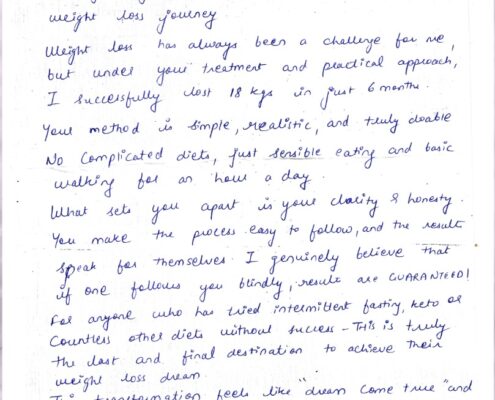 weight loss journey
Weight loss has always been a challenge for me,
but under your treatment and practical approach,
I successfully lost 18 kgs in just 6 months.
Your method is simple, realistic, and truly doable
No complicated diets, just sensible eating and basic
walking for an hour a day.
What sets you apart is your clarity & honesty.
You make the process easy to follow, and the results
speak for themselves I genuinely believe that
if one follows you blindly, results are GUARANTEED!
For anyone who has tried intermittent fasting, keto or
countless other diets without success - THIS is truly
the last and final destination to achieve their
weight loss dream.
transformation feels like "dream come true" and